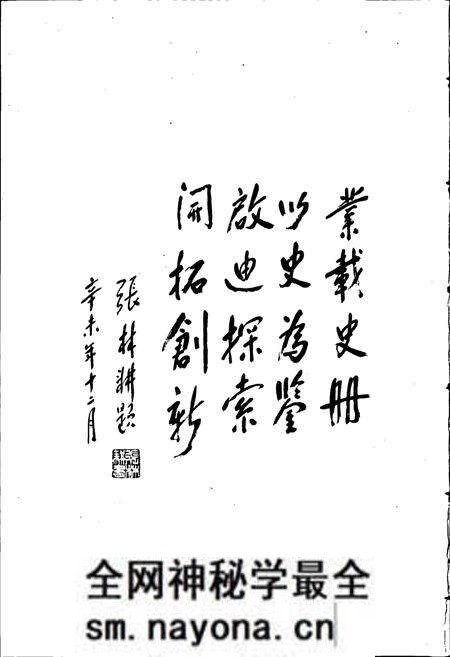 業載史册
以史為鑒
啟迪探索
開拓創新
張林耕題
辛未年十二月
全网神秘学最全
sm.nayona.cn